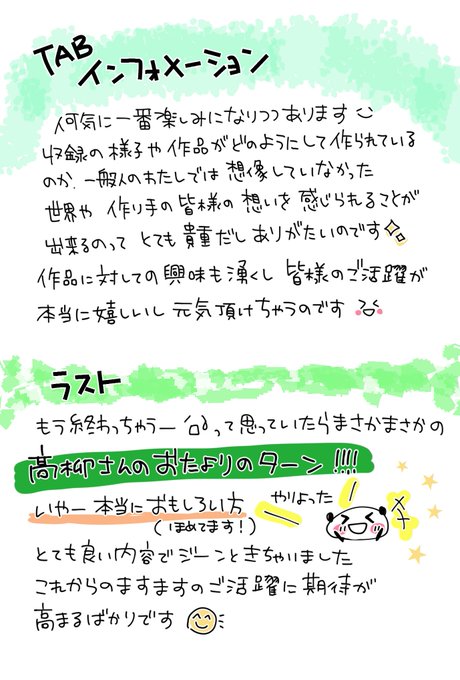 TAB
インフォメーション
何気に一番楽しみになりつつあります
収録の様子や作品がどのようにして作られている
のか、一般人のわたしでは想像していなかった
世界や 作り手の皆様の想いを感じられることが
出来るのって とても貴重だしありがたいのです
作品に対しての興味も湧くし 皆様のご活躍が
本当に嬉しいし 元気頂けちゃうのです
ラスト
もう終わっちゃうー って思っていたらまさかまさかの
高柳さんのおたよりのターン!!!!
いやー本当におもしろい方
(ほめてます!)
やりよった
とても良い内容でジーンときちゃいました
これからのますますのご活躍に期待が
高まるばかりです